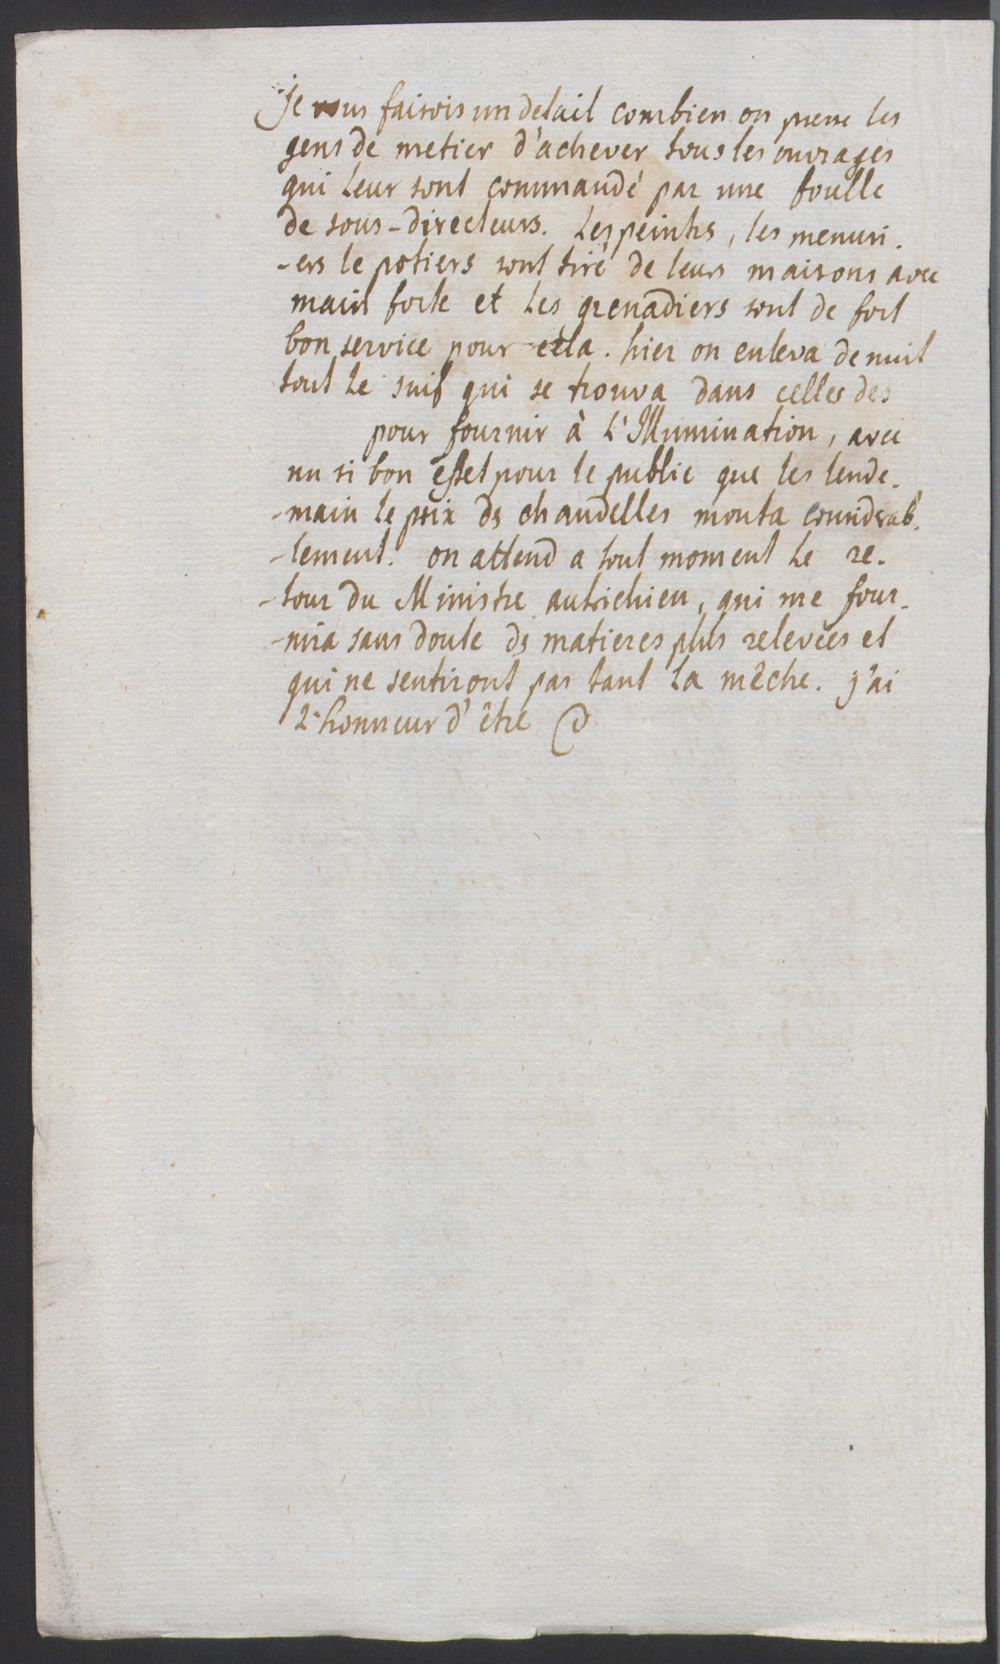 Je vous faisois un detail combien on presse les
gens de metier d'achever tous les ouvrages
qui leur sont commandé par une foulle
de sous-directeurs. Les peintrs, les menusi-
-ers le potiers sont tiré de leurs maisons avec
main forte et les grenadiers sont de fort
bon service pour cela. hier on enleva de nuit
tout le suif qui se trouva dans celles des
pour fournir à L'Illumination, avec
un si bon effet pour le public que les lende-
-main le prix ds chandelles monta
-lement. on attend a tout moment le re-
-tour du Ministre autrichien, qui me four-
-nira sans doute ds matieres plus relevées et
qui ne sentiront pas tant la mêche. j'ai
L'honneur d'être